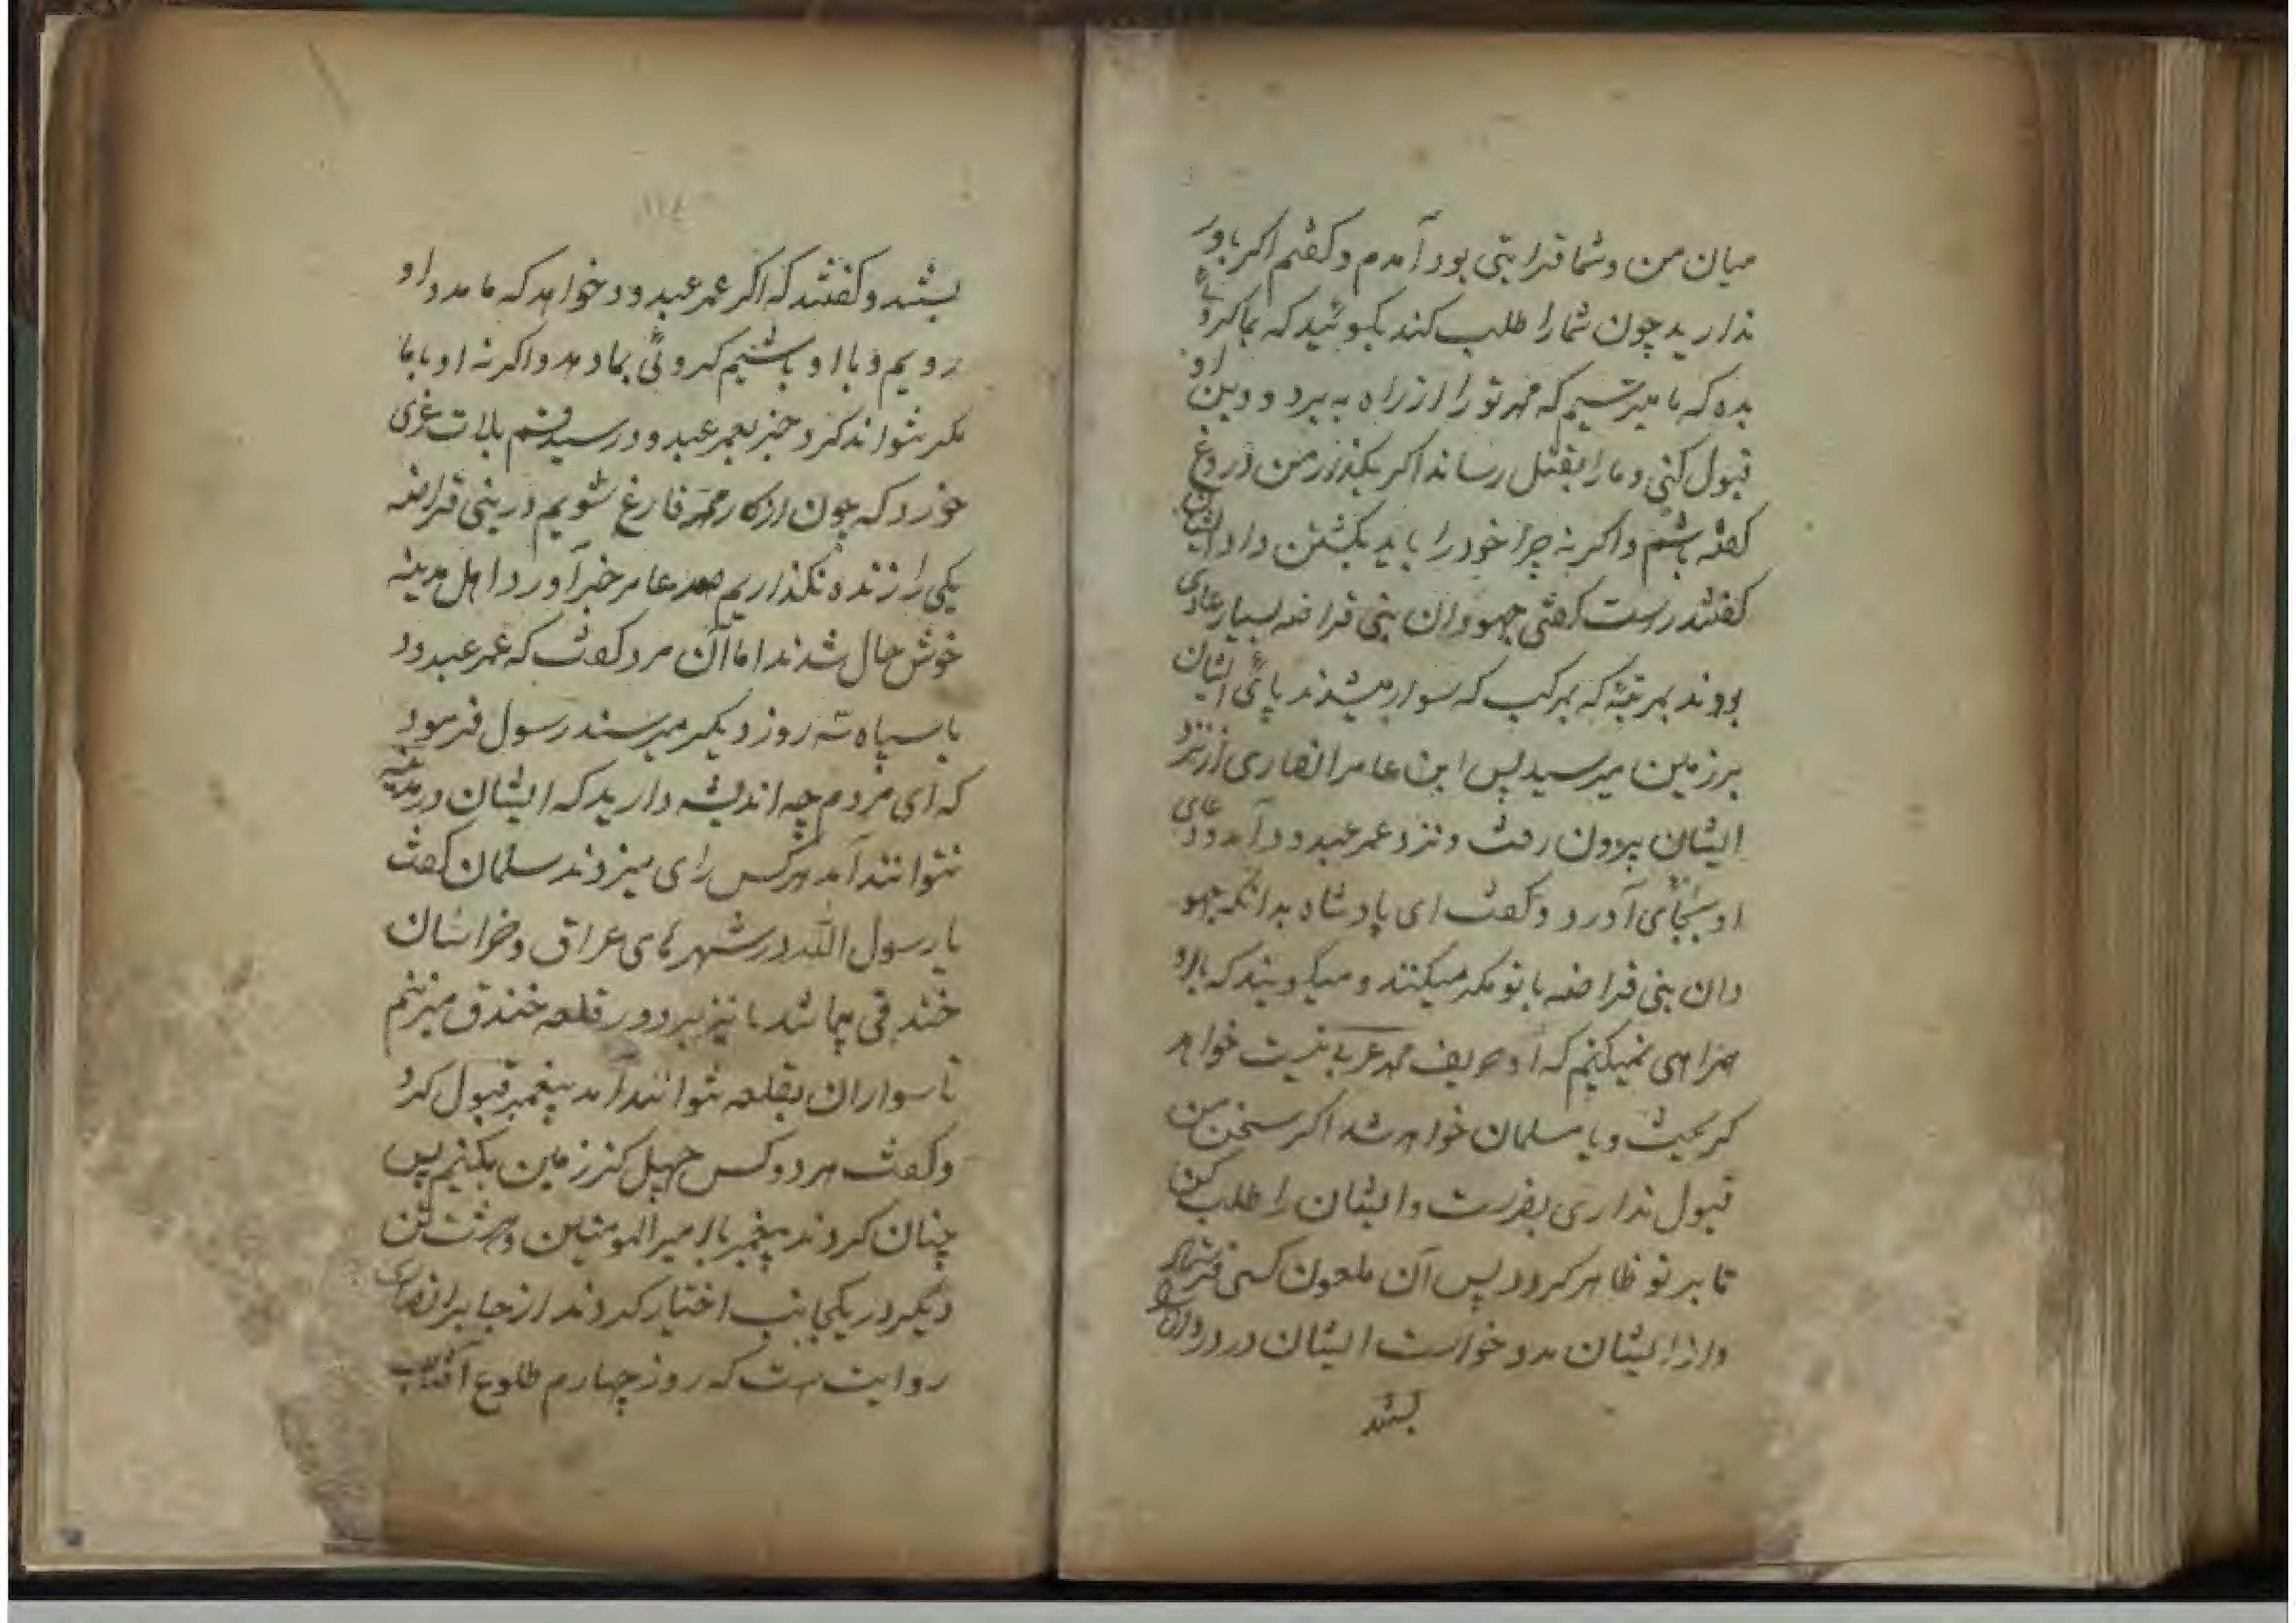 میان من و شما قرابتی بود آمدم و کفتم اکر باور
ندارید چون شما را طلب کند بکوئید که بما کروئی
بده که ما میترسیم که محمد تو را از راه به برد و دین او
قبول کنی و ما را بقتل رساند اکر بکذرد من دروغ
کفته باشم و اکر نه چرا خود را باید بکشتن داد ایشان
کفتند رست کفتی جهودان بنی قراضه بسیار عادی
بودند بمرتبهٔ که بمرکب که سوار میشدند پای ایشان
برزمین میرسید پس ابن عامر انصاری از نزد
ایشان بیرون رفت و نزد عمر عبدود آمد و دعای
او بجای آورد و کفت ای پادشاه بدانکه جهو
دان بنی قراضه با تو مکر میکنند و میکویند که با او
همراهی نمیکنیم که او حریف محمد عربی نیست خواهد
کریخت و یا مسلمان خواهد شد اکر سخن من
قبول نداری بفرست و ایشان را طلب کن
تا بر تو ظاهر کردد پس آن ملعون کسی فرستاد
و از ایشان مدد خواست ایشان در دروازه
بستند
۱۱۴
بستند و کفتند که اکر عمر عبدود خواهد که ما مدد او
رویم و با او باشیم کروئی بما دهد و اکرنه او با ما
مکر نتواند کرد خبر بعمر عبدود رسید قسم بلات عزی
خورد که چون از کار محمد فارغ شویم در بنی قراضه
یکی را زنده نکذاریم عامر خبر آورد اهل مدینه
خوش حال شدند اما آن مرد کفت که عمر عبدود
با سپاه سه روز دیکر میرسند رسول فرمود
که ای مردم چه اندیشه دارید که ایشان در مدینه
نتوانند آمد هرکس رای میزدند سلمان کفت
یا رسول الله در شهرهای عراق و خراسان
خندقی میباشد ما نیز بر دور قلعه خندق میزنیم
تا سواران بقلعه نتوانند آمد پیغمبر قبول کرد
و کفت هر دو کس چهل کز زمین بکنیم پس
چنان کردند پیغمبر با امیر المومنین و هشت تن
دیکر در یکجانب اختیار کردند از جابر انصاری
روایت ست که روز چهارم طلوع آفتاب